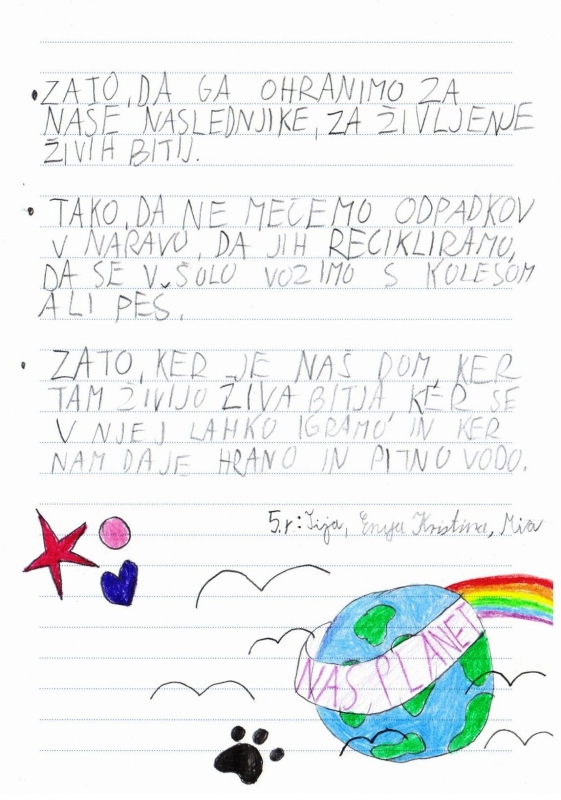 • ZATO, DA GA OHRANIMO ZA
NAŠE NASLEDNJIKE, ZA ŽIVLJENJE
ŽIVIH BITIJ.
• TAKO, DA NE MEČEMO ODPADKOV
V NARAVO, DA JIH RECIKLIRAMO,
DA SE V ŠOLO VOZIMO S KOLESOM
ALI PEŠ.
• ZATO, KER JE NAŠ DOM, KER
TAM ŽIVIJO ŽIVA BITJA, KER SE
V NJEJ LAHKO IGRAMO IN KER
NAM DAJE HRANO IN PITNO VODO.
5.r: Tija, Enya Kristina, Mia
NAŠ PLANET